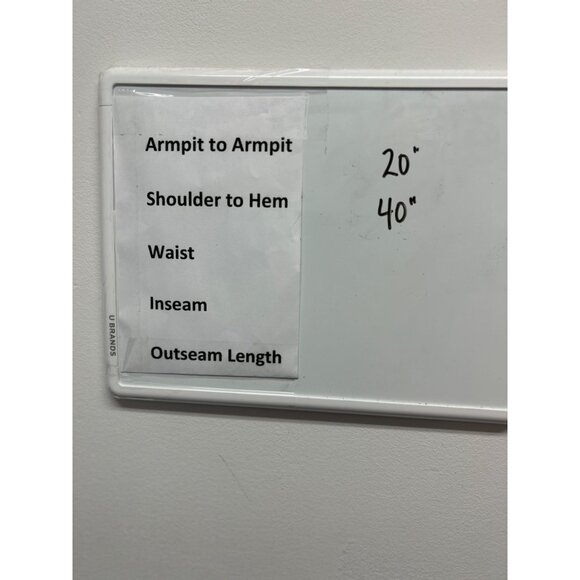 Armpit to Armpit 20"
Shoulder to Hem 40"
Waist
Inseam
Outseam Length
U BRANDS